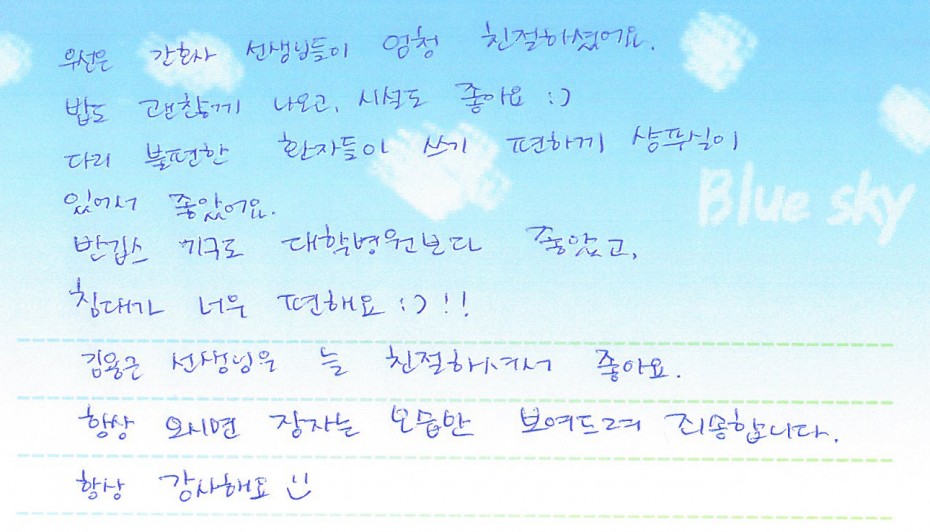 우선은 간호사 선생님들이 엄청 친절하셨어요.
밥도 괜찮게 나오고, 시설도 좋아요 :)
다리 불편한 환자들이 쓰기 편하게 샴푸실이
있어서 좋았어요.
Blue sky
반깁스 기구도 대학병원보다 좋았고,
침대가 너무 편해요 :) !!
김용근 선생님은 늘 친절하셔서 좋아요.
항상 오시면 잠자는 모습만 보여드려 죄송합니다.
항상 감사해요 :)